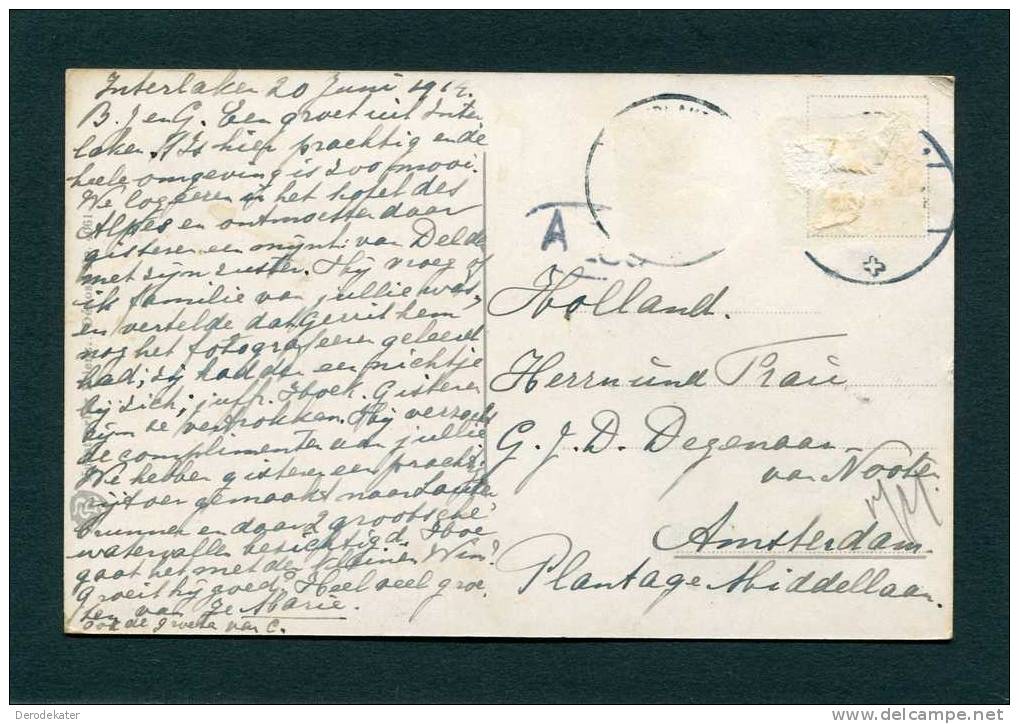 Interlaken 20 Juni 191
B. J en G. Een groet uit Inter
laken. 't Is hier prachtig en de
heele omgeving is zoo mooi.
We logeeren in het hotel des
Alpes en ontmoetten daar
gisteren een mijnh. van Delde
met zijn zuster. Hij vroeg of
ik familie van jullie was,
en vertelde dat Gerrit hem
nog het fotografeeren geleerd
had; zij hadden een nichtje
bij zich, juffr. Hoek. Gisteren
zijn ze vertrokken. Hij verzocht
de complimenten aan jullie
We hebben gisteren een pracht
rijtoer gemaakt naar Lauter
brunnen en daar 2 grootsche
watervallen bezichtigd. Hoe
gaat het met den kleinen Wim?
Groeit hij goed? Heel veel groe
ten van Je Marie.
ook de groeten van C.
A
Holland.
Herrn und Frau
G. J. D. Degenaar
van Noote
Amsterdam
Plantage Middellaan.
Derodekater
www.delcampe.net